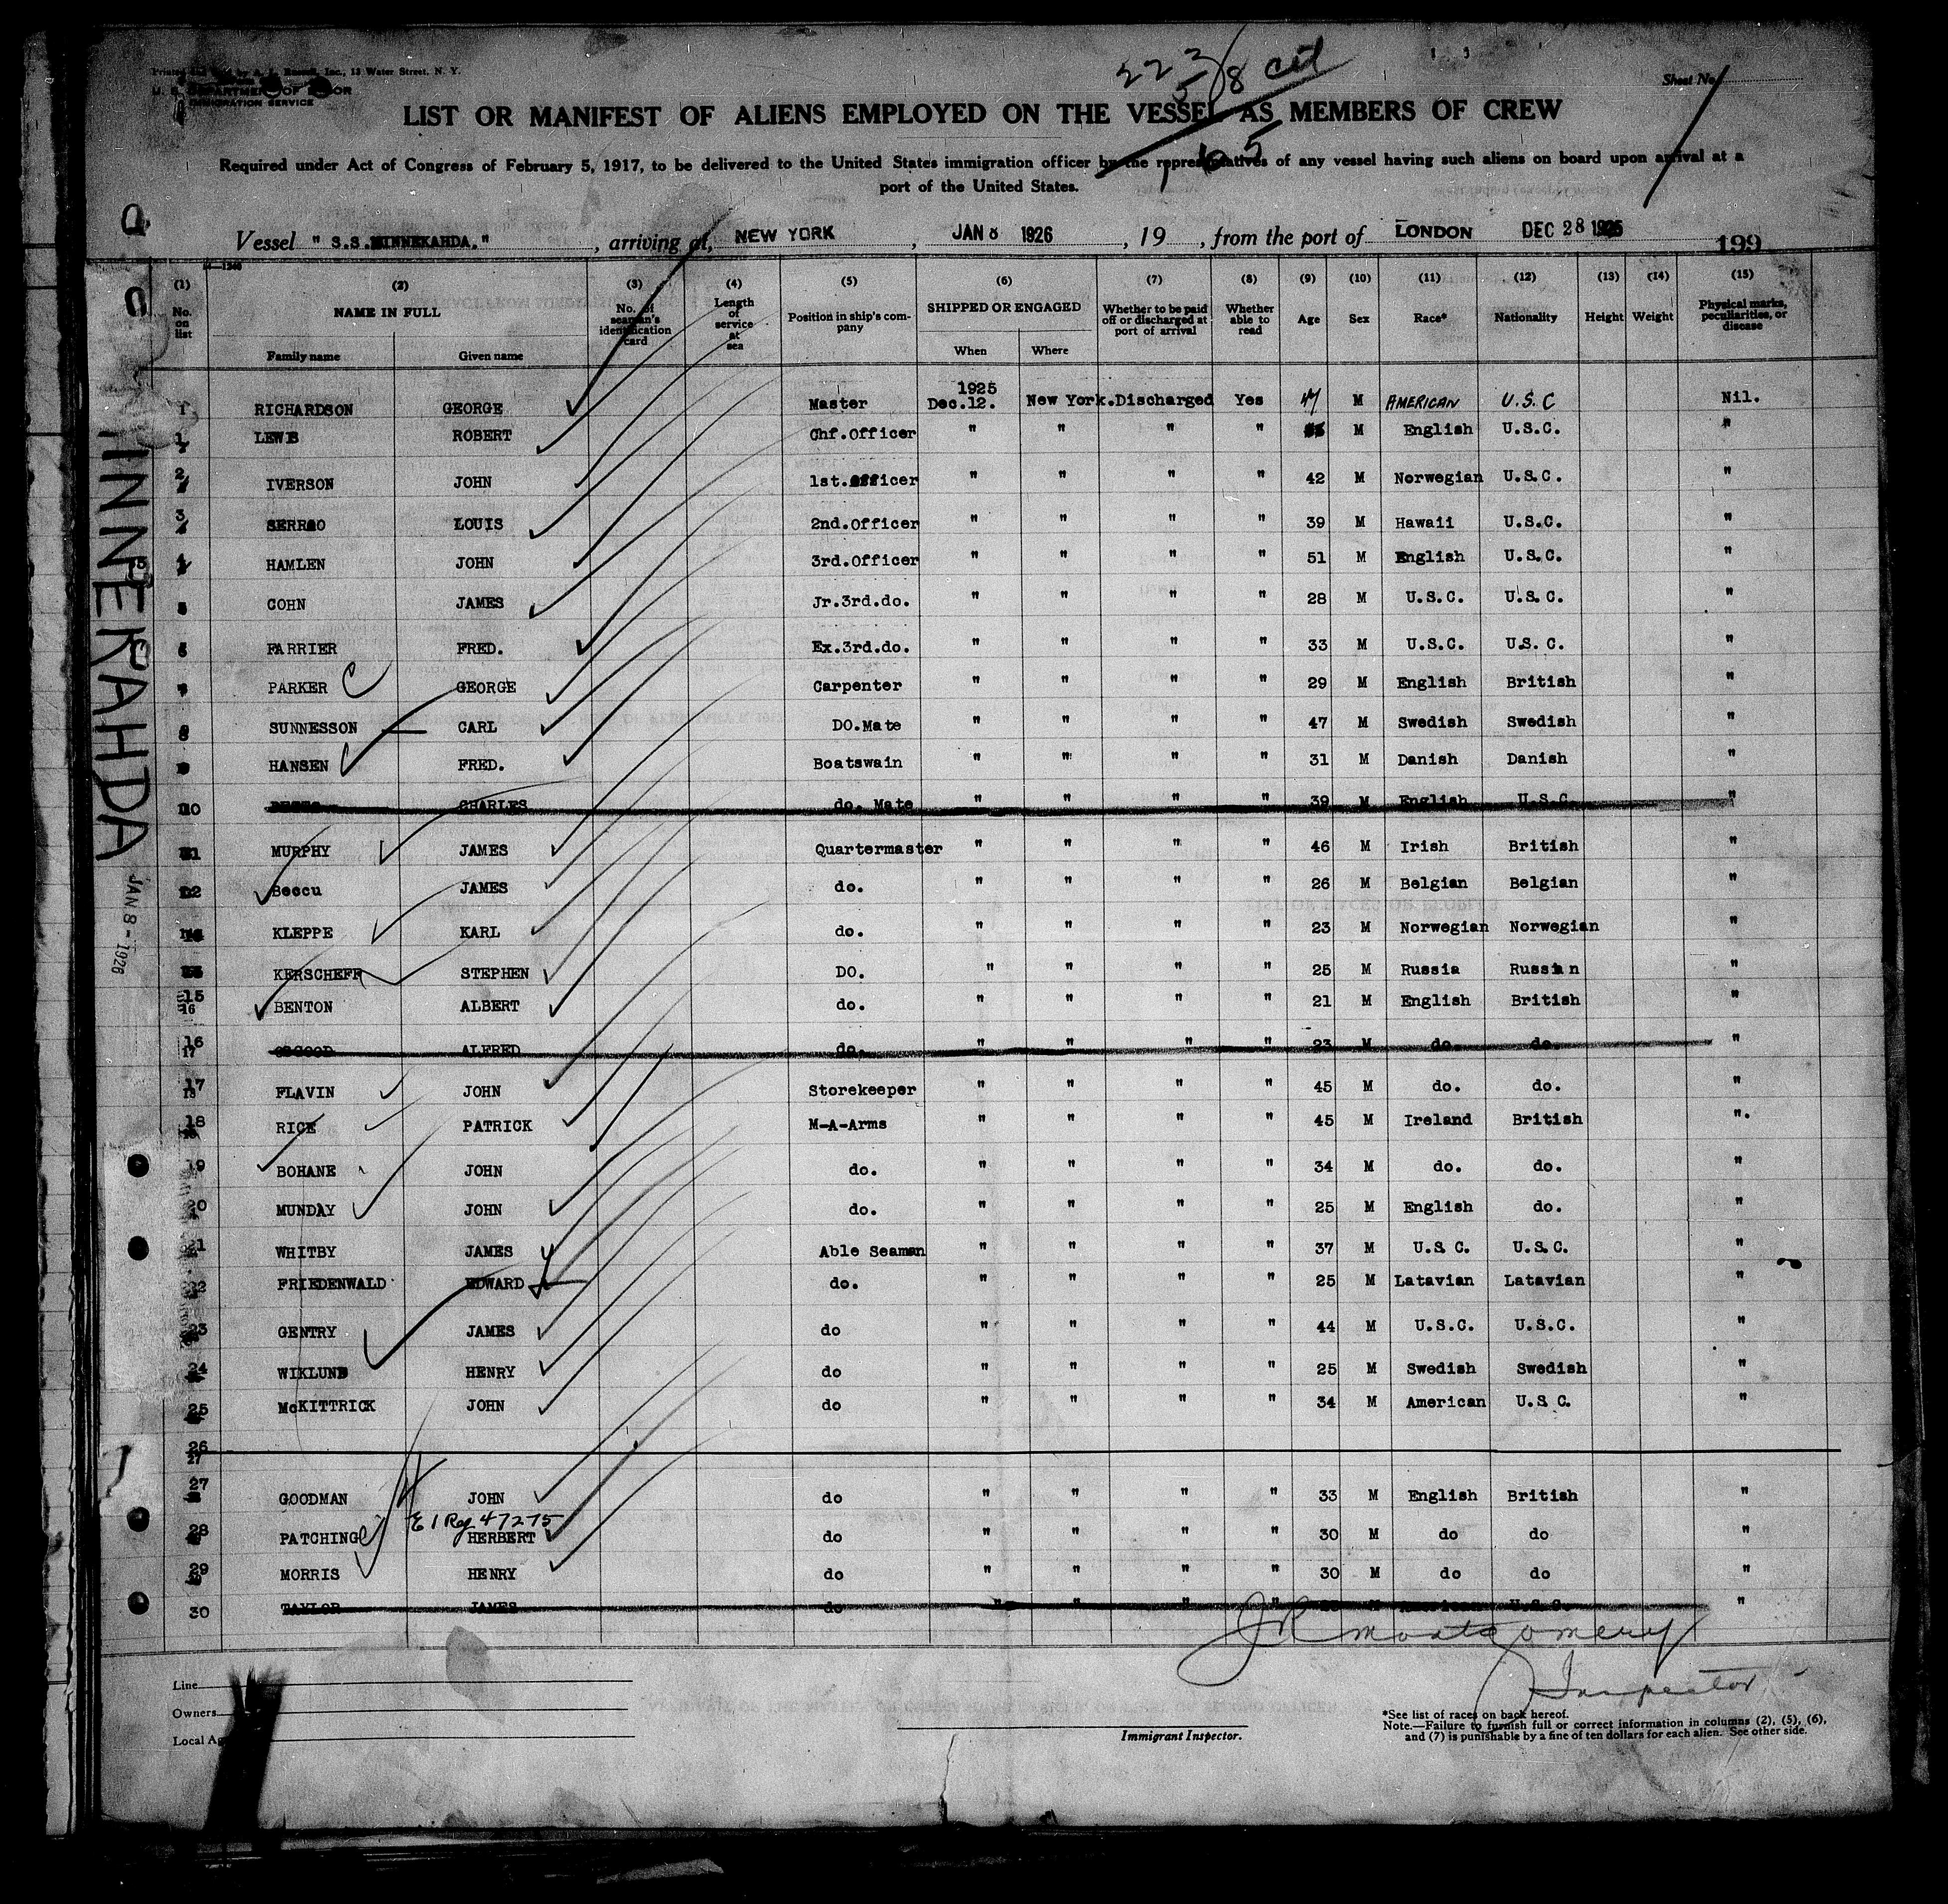 223/8 cit
5
Sheet No.
U. S. DEPARTMENT OF LABOR
IMMIGRATION SERVICE
LIST OR MANIFEST OF ALIENS EMPLOYED ON THE VESSEL AS MEMBERS OF CREW
Required under Act of Congress of February 5, 1917, to be delivered to the United States immigration officer by the representatives of any vessel having such aliens on board upon arrival at a
port of the United States.
Vessel " S.S.MINNEKAHDA. " , arriving at, NEW YORK , JAN 8 1926 , 19 , from the port of LONDON DEC 28 1925 199
(1) (2) (3) (4) (5) (6) (7) (8) (9) (10) (11) (12) (13) (14) (15)
No. on list NAME IN FULL Family name Given name No. of seaman's identification card Length of service at sea Position in ship's company SHIPPED OR ENGAGED When Where Whether to be paid off or discharged at port of arrival Whether able to read Age Sex Race* Nationality Height Weight Physical marks, peculiarities, or disease
1925
1 RICHARDSON GEORGE Master Dec.12. New York. Discharged Yes 47 M AMERICAN U.S.C Nil.
1 LEWIS ROBERT Chf.Officer " " " " M English U.S.C. "
2 IVERSON JOHN 1st.Officer " " " " 42 M Norwegian U.S.C. "
3 SERRAO LOUIS 2nd.Officer " " " " 39 M Hawaii U.S.C. "
4 HAMLEN JOHN 3rd.Officer " " " " 51 M English U.S.C. "
COHN JAMES Jr.3rd.do. " " " " 28 M U.S.C. U.S.C. "
FARRIER FRED. Ex.3rd.do. " " " " 33 M U.S.C. U.S.C. "
PARKER C GEORGE Carpenter " " " " 29 M English British "
8 SUNNESSON CARL DO.Mate " " " " 47 M Swedish Swedish "
9 HANSEN FRED. Boatswain " " " " 31 M Danish Danish "
10 CHARLES do. Mate " " " " 39 M English U.S.C. "
11 MURPHY JAMES Quartermaster " " " " 46 M Irish British "
12 Beccu JAMES do. " " " " 26 M Belgian Belgian "
KLEPPE KARL do. " " " " 23 M Norwegian Norwegian "
KERSCHEFF STEPHEN DO. " " " " 25 M Russia Russian "
15 16 BENTON ALBERT do. " " " " 21 M English British "
16 17 OSGOOD ALFRED do. " " " " 23 M do. do. "
17 18 FLAVIN JOHN Storekeeper " " " " 45 M do. do. "
18 RICE PATRICK M-A-Arms " " " " 45 M Ireland British ".
19 BOHANE JOHN do. " " " " 34 M do. do. "
20 MUNDAY JOHN do. " " " " 25 M English do. "
21 WHITBY JAMES Able Seaman " " " " 37 M U.S C. U.S.C. "
22 FRIEDENWALD EDWARD do. " " " " 25 M Latavian Latavian "
23 GENTRY JAMES do " " " " 44 M U.S.C. U.S.C. "
24 WIKLUND HENRY do " " " " 25 M Swedish Swedish "
25 McKITTRICK JOHN do " " " " 34 M American U.S C. "
26 27
27 GOODMAN JOHN do " " " " 33 M English British "
E 1 Reg 47275
28 PATCHING HERBERT do " " " " 30 M do do "
29 MORRIS HENRY do " " " " 30 M do do "
30 TAYLOR JAMES do " " " " M American U.S.C. "
JR Montgomery
Inspector
Line
Owners
Local Ag
Immigrant Inspector.
*See list of races on back hereof.
Note.—Failure to furnish full or correct information in columns (2), (5), (6),
and (7) is punishable by a fine of ten dollars for each alien. See other side.
INNEKAHDA
JAN 8 - 1926